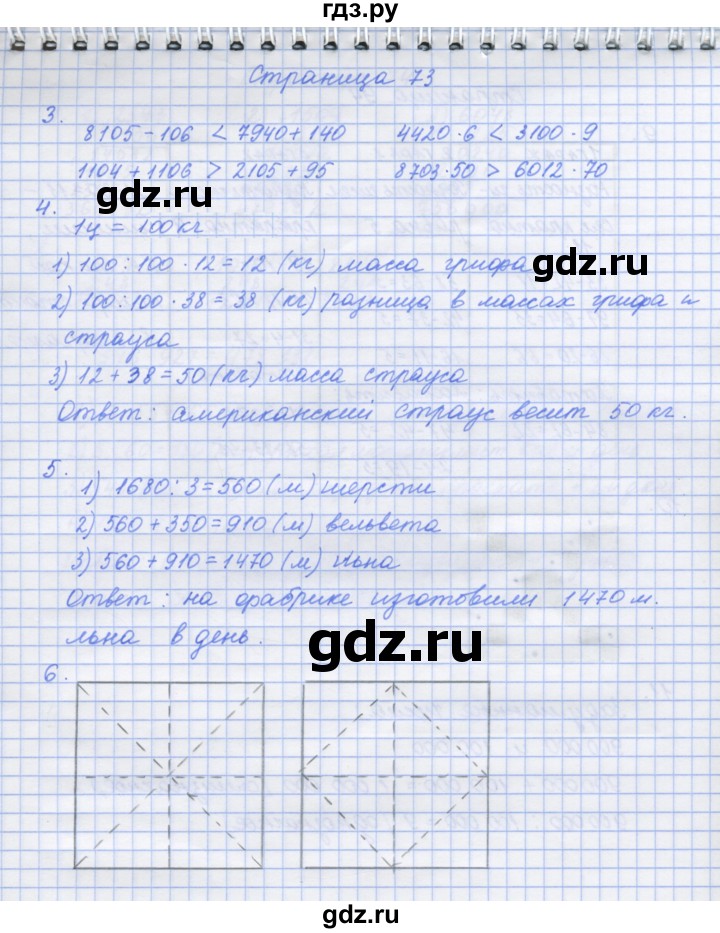 гдз.ру
Страница 73
3.
8105 - 106 < 7940 + 140 4420 · 6 < 3100 · 9
1104 + 1106 > 2105 + 95 8703 · 50 > 6012 · 70
gdz.ru
4.
1ц = 100кг
1) 100 : 100 · 12 = 12 (кг) масса грифа
gdz.ru
2) 100 : 100 · 38 = 38 (кг) разница в массах грифа и
страуса
3) 12 + 38 = 50 (кг) масса страуса
Ответ: американский страус весит 50 кг.
5.
1) 1680 : 3 = 560 (м) шерсти
2) 560 + 350 = 910 (м) вельвета
3) 560 + 910 = 1470 (м) льна
Ответ: на фабрике изготовили 1470 м.
льна в день.
gdz.ru
6.
gdz.ru